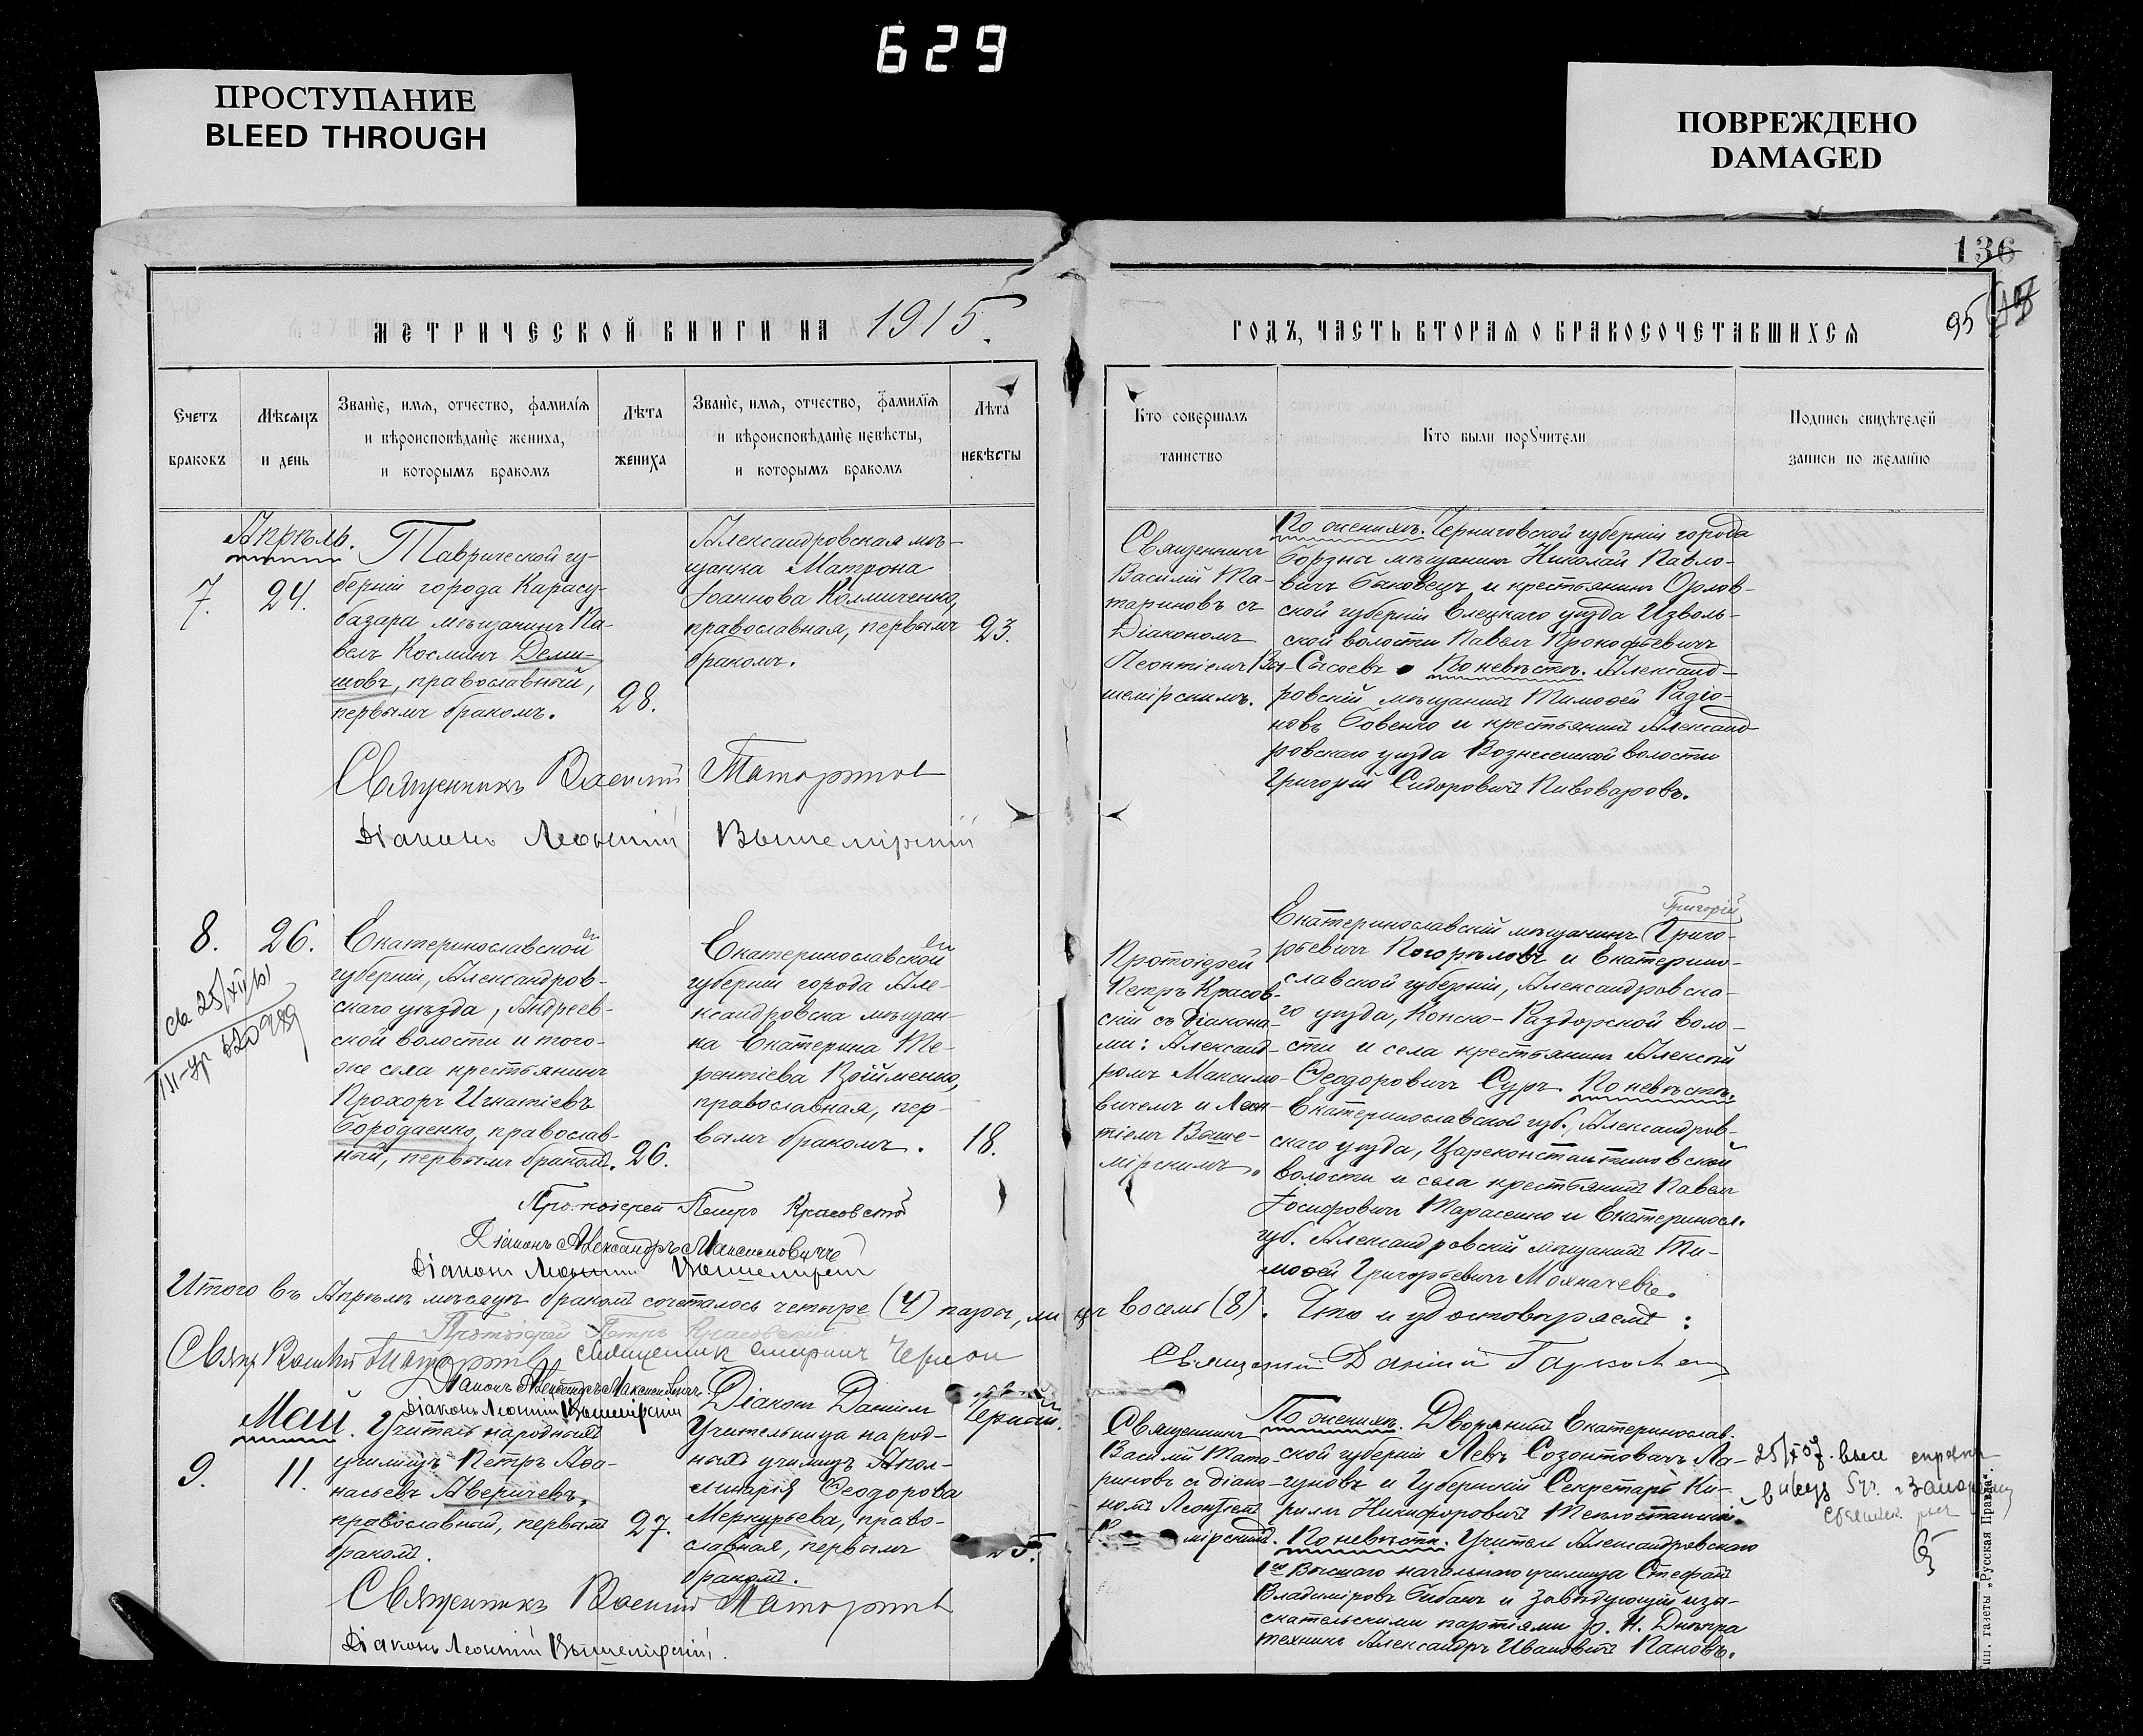 629
ПРОСТУПАНИЕ
BLEED THROUGH
ПОВРЕЖДЕНО
DAMAGED
136
95
МЕТРИЧЕСКОЙ КНИГИ НА 1915.
ГОДЪ, ЧАСТЬ ВТОРАЯ О БРАКОСОЧЕТАВШИХСЯ
Счетъ
браковъ
Мѣсяцъ
и день
Званїе, имя, отчество, фамилїя
и вѣроисповѣданїе жениха,
и которымъ бракомъ
Лѣта
жениха
Званїе, имя, отчество, фамилїя
и вѣроисповѣданїе невѣсты,
и которымъ бракомъ
Лѣта
невѣсты
Кто совершалъ
таинство
Кто были порꙋчители
Подпись свидѣтелей
записи по желанїю
Апрѣль.
7.
24.
Таврической гу-
берніи города Карасу-
базара мѣщанинъ Па-
велъ Косминъ Деми-
шовъ, православный,
первымъ бракомъ.
28.
Александровская мѣ-
щанка Матрона
Іоаннова Колмиченко,
православная, первымъ
бракомъ.
23.
Священникъ
Василій Та-
тариновъ съ
Діакономъ
Леонтіемъ Вы-
шемірскимъ.
По женихѣ. Черниговской губерніи города
Борзны мѣщанинъ Николай Павло-
вичъ Быковецъ и крестьянинъ Орлов-
ской губерніи Елецкаго уѣзда Изволь-
ской волости Павелъ Прокофьевичъ
Сысоевъ. По невѣстѣ. Александ-
ровскій мѣщанинъ Тимоѳей Радіо-
новъ Бовенко и крестьянинъ Александ
ровскаго уѣзда Вознесенской волости
Григорій Сидоровичъ Пивоваровъ.
Священникъ Василій Татариновъ
Діаконъ Леонтій Вышемірскій
8.
26.
Екатеринославской
губерніи, Александров-
скаго уѣзда, Андреев-
ской волости и того-
же села крестьянинъ
Прохоръ Игнатіевъ
Бородаенко, православ-
ный, первымъ бракомъ.
26.
Екатеринославской
губерніи города Але-
ксандровска мѣщан-
ка Екатерина Те-
рентіева Войменко,
православная, пер-
вымъ бракомъ.
18.
Протоіерей
Петръ Красов-
скій съ діакона-
ми: Александ-
ромъ Максимо-
вичемъ и Леон-
тіемъ Выше-
мірскимъ.
Григорій
Екатеринославскій мѣщанинъ Григо-
рьевичъ Погорѣловъ и Екатерино-
славской губерніи, Александровска-
го уѣзда, Конско-Раздорской воло-
сти и села крестьянинъ Алексѣй
Ѳеодоровичъ Суръ. По невѣстѣ.
Екатеринославской губ., Александров-
скаго уѣзда, Цареконстантиновской
волости и села крестьянинъ Павелъ
Іосифовичъ Тарасенко и Екатериносл.
губ. Александровскій мѣщанинъ Ти-
моѳей Григорьевичъ Мохначевъ.
Протоіерей Петръ Красовскій
Діаконъ Александръ Максимовичъ
Діаконъ Леонтій Вышемірскій
Итого въ Апрѣлѣ мѣсяцѣ бракомъ сочеталось четыре (4) пары, лицъ восемь (8). Что и удостовѣряемъ:
Протоіерей Петръ Красовскій
Свящ. Василій Татариновъ
Священникъ Даніилъ
Діаконъ Александръ Максимовичъ
Діаконъ Леонтій Вышемірскій
Діаконъ Даніилъ
Май.
9.
11.
Учитель народныхъ
училищъ Петръ Аѳа-
насьевъ Аверичевъ,
православный, первымъ
бракомъ.
27.
Учительница народ-
ныхъ училищъ Апол-
линарія Ѳеодорова
Меркурьева, право-
славная, первымъ
бракомъ.
Священникъ
Василій Тата-
риновъ съ діако-
номъ Леонтіемъ
мірскимъ.
По женихѣ. Дворянинъ Екатеринослав.
ской губерніи Левъ Созонтовичъ Ла-
гуновъ и Губернскій Секретарь Ки-
риллъ Никифоровичъ Теплостанскій.
По невѣстѣ. Учитель Александровскаго
1го Высшаго начальнаго училища Стефанъ
Владиміровъ Бибакъ и Завѣдующій изы-
скательскими партіями р. Н. Днѣпра
техникъ Александръ Ивановичъ Пановъ.
Священникъ Василій Татариновъ
Діаконъ Леонтій Вышемірскій.
Тип. газеты „Русская Правда“.